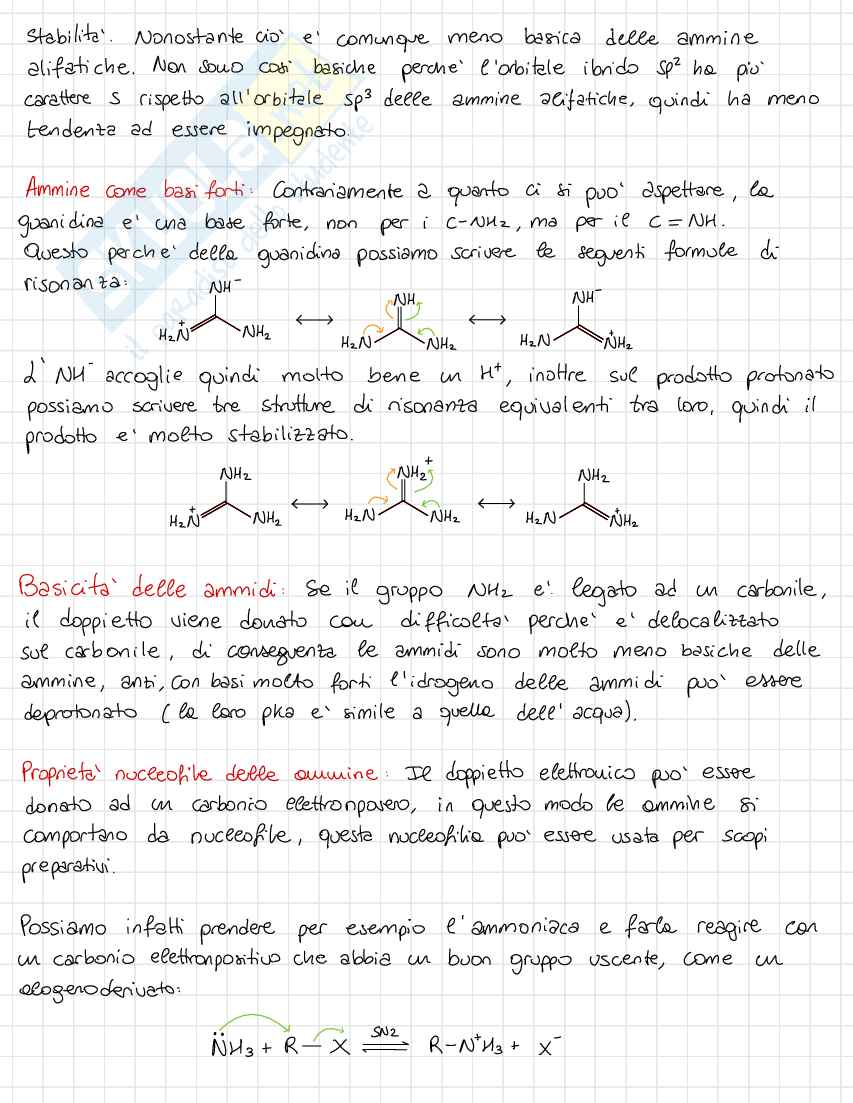 stabilità. Nonostante ciò e' comunque meno basica delle ammine
alifatiche. Non sono così basiche perche' l'orbitale ibrido sp² ha più
carattere s rispetto all'orbitale sp³ delle ammine alifatiche, quindi ha meno
tendenza ad essere impegnato.
Ammine come basi forti: Contrariamente a quanto ci si può aspettare, la
guanidina e' una base forte, non per i C-NH2, ma per il C=NH.
Questo perche' della guanidina possiamo scrivere le seguenti formule di
risonanza:
NH⁻ NH NH⁻
H2N⁺ NH2 ⟷ H2N NH2 ⟷ H2N NH2⁺
L' NH⁻ accoglie quindi molto bene un H⁺, inoltre sul prodotto protonato
possiamo scrivere tre strutture di risonanza equivalenti tra loro, quindi il
prodotto e' molto stabilizzato.
NH2 NH2⁺ NH2
H2N⁺ NH2 ⟷ H2N NH2 ⟷ H2N NH2⁺
Basicità delle ammidi: Se il gruppo NH2 e' legato ad un carbonile,
il doppietto viene donato con difficoltà perche' e' delocalizzato
sul carbonile, di conseguenza le ammidi sono molto meno basiche delle
ammine, anzi, con basi molto forti l'idrogeno delle ammidi può essere
deprotonato (la loro pka e' simile a quella dell'acqua).
Proprietà nucleofile delle ammine: Il doppietto elettronico può essere
donato ad un carbonio elettronpovero, in questo modo le ammine si
comportano da nucleofile, questa nucleofilia può essere usata per scopi
preparativi.
Possiamo infatti prendere per esempio l'ammoniaca e farla reagire con
un carbonio elettronpositivo che abbia un buon gruppo uscente, come un
alogenoderivato:
N̈H3 + R — X ⇌ SN2 R-N⁺H3 + X⁻
SKUOLA.net
il paradiso dello studente